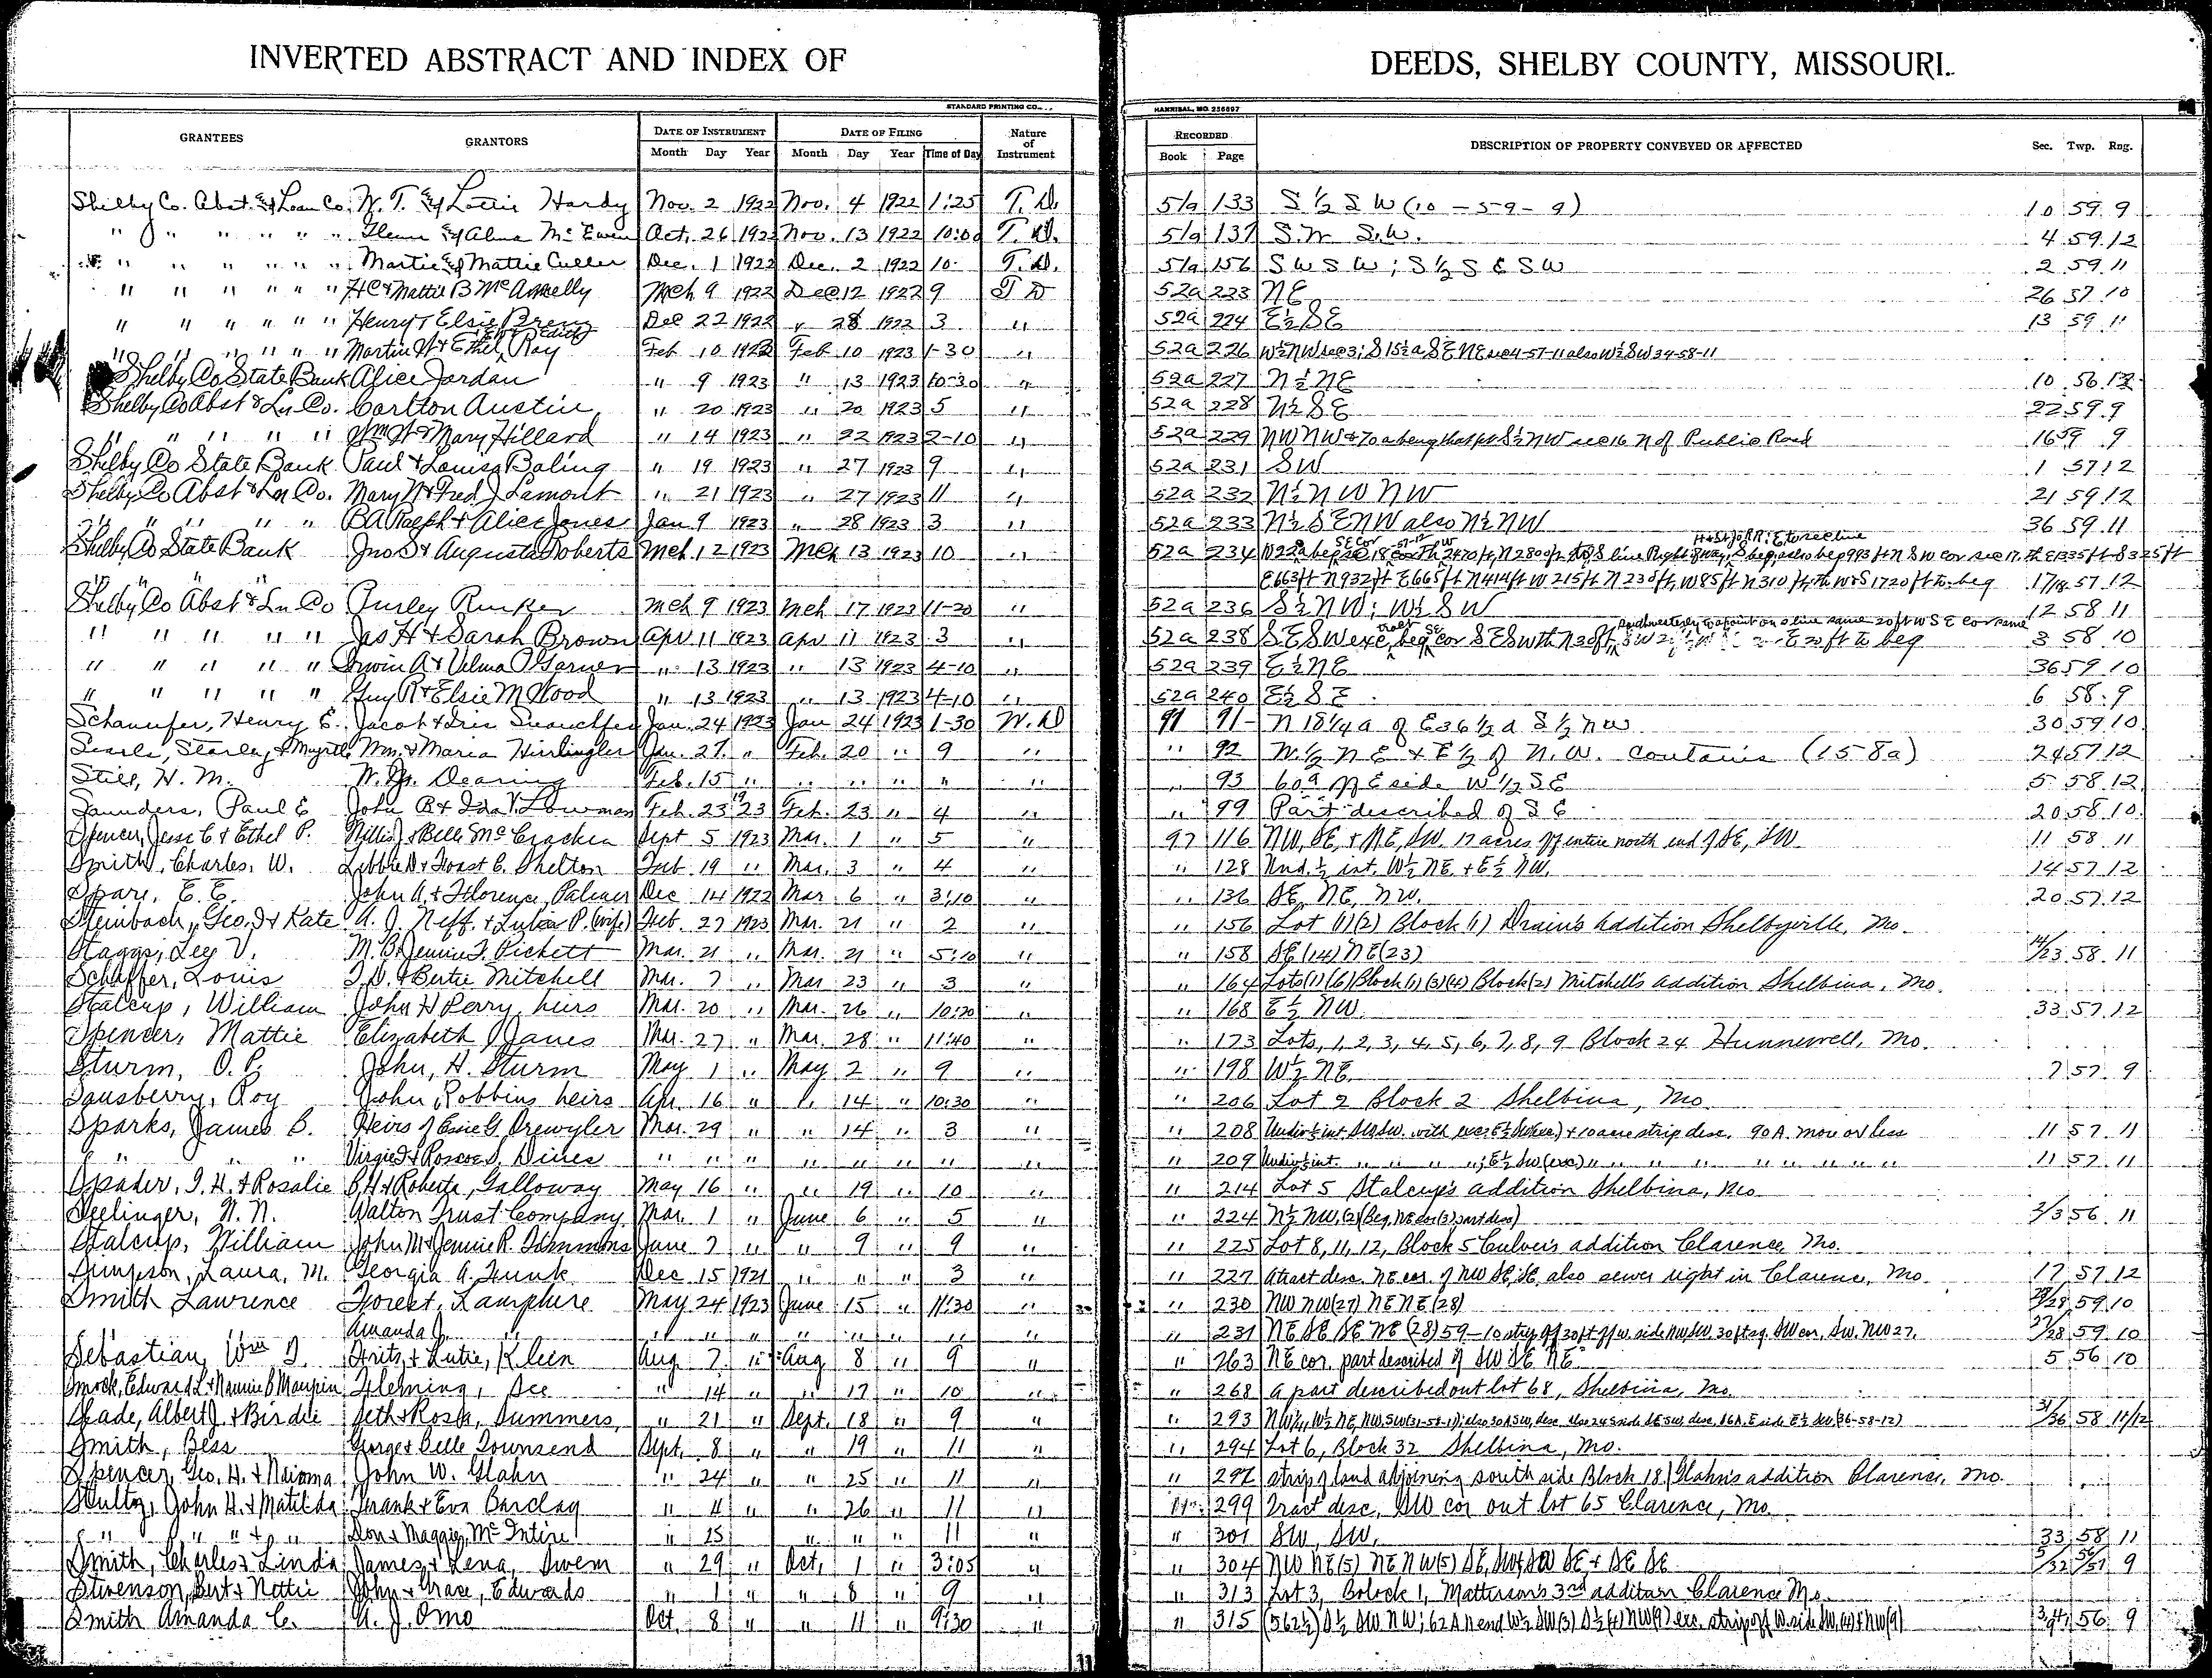 INVERTED ABSTRACT AND INDEX OF DEEDS, SHELBY COUNTY, MISSOURI.
STANDARD PRINTING CO. HANNIBAL, MO. 236897
GRANTEES GRANTORS DATE OF INSTRUMENT DATE OF FILING Nature of Instrument RECORDED DESCRIPTION OF PROPERTY CONVEYED OR AFFECTED Sec. Twp. Rng.
Month Day Year Month Day Year Time of Day Book Page
Shelby Co. Abst. & Loan Co. W. T. & Lottie Hardy Nov. 2 1922 Nov. 4 1922 1:25 T. D. 51a 133 S ½ S W (10 - 59 - 9) 10 59 9
" " " " " " Glenn & Alma McEwen Oct. 26 1922 Nov. 13 1922 10:00 T. D. 51a 137 4 59 12
" " " " " " & Mattie Culler Dec. 1 1922 Dec. 2 1922 10 T. D. 51a 156 S W S W ; S ½ S E S W 2 59 11
" " " " " " HC & Mattie B Mch 9 1922 Dec 12 1922 9 T D 52a 223 NE 26 57 10
" " " " " " Henry & Elsie Dec 22 1922 " 28 1922 3 " 52a 224 E½ SE 13 59 11
" " " " " " Martin W & Ethel Ray Feb 10 1923 Feb 10 1923 1-30 " 52a 226 W½ NW sec 3; S 15½ a SE NE sec 4-57-11 also W½ SW 34-58-11
Shelby Co State Bank Alice Jordan " 9 1923 " 13 1923 10-30 " 52a 227 N½ NE 10 56 12
Shelby Co Abst & Ln Co. Carlton Austin " 20 1923 " 20 1923 5 " 52a 228 N½ SE 22 59 9
" " " " " Wm H & Mary Hillard " 14 1923 " 22 1923 2-10 " 52a 229 NW NW & 70 a being that pt S½ NW sec 16 N of Public Road 16 59 9
Shelby Co State Bank Paul & Louisa Boling " 19 1923 " 27 1923 9 " 52a 231 SW 1 57 12
Shelby Co Abst & Ln Co. Mary N & Fred J Lamont " 21 1923 " 27 1923 11 " 52a 232 N½ NW NW 21 59 12
" " " " " BA Ralph & Alice Jones Jan 9 1923 " 28 1923 3 " 52a 233 N½ SE NW also N½ NW 36 59 11
Shelby Co State Bank Jno S & Augusta Roberts Mch 12 1923 Mch 13 1923 10 52a 234 beg SE cor 18 2470 ft, N 2800 ft to S line Right of way, also beg 993 ft N SW cor sec 17, th E 1335 ft S 325 ft
E 663 ft N 932 ft E 665 ft N 414 ft W 215 ft N 230 ft, W 85 ft N 310 ft, th W & S 1720 ft to beg 17/18 57 12
Shelby Co Abst & Ln Co Purley Rinker Mch 9 1923 Mch 17 1923 11-20 " 52a 236 S½ NW; W½ SW 12 58 11
" " " " " Jas H & Sarah Brown Apr 11 1923 Apr 11 1923 3 " 52a 238 SE SW exc tract beg SE cor SE SW th N 30 ft, E 20 ft to beg 3 58 10
" " " " " Irwin A & Velma O Garner " 13 1923 " 13 1923 4-10 " 52a 239 E½ NE 36 59 10
" " " " " Guy R & Elsie M Wood " 13 1923 " 13 1923 4-10 " 52a 240 E½ SE 6 58 9
Henry E. Jacob & Jan. 24 1923 Jan 24 1923 1-30 W. D 91 91 N 18¼ a of E 36½ a S ½ NW 30 59 10
Searle, Starley & Myrtle Wm. & Maria Jan. 27 " Feb. 20 " 9 " " 92 W.½ N E & E ½ of N. W. contains (158a) 24 57 12
Still, H. M. W. M. Dearing Feb. 15 " " " " " " " 93 60a off E side W ½ SE 5 58 12
Saunders, Paul E John R & Ida V. Lowman Feb. 23 1923 Feb. 23 " 4 " " 99 Part described of S E 20 58 10
Spencer, Jesse C & Ethel P. Willis J & Belle McCracken Sept 5 1923 Mar. 1 " 5 " 97 116 NW, SE, & NE, SW. 17 acres off entire north end of SE, SW 11 58 11
Smith, Charles, W. Libbie D & Foast C. Shelton Feb 19 " Mar. 3 " 4 " " 128 Und. ½ int. W½ NE. & E½ NW. 14 57 12
Spare, E. E. John A. & Florence, Palmer Dec 14 1922 Mar 6 " 3:10 " " 136 SE, NE, NW. 20 57 12
Steinbach, Geo. J & Kate A. J. Neff. & Lulu P. (wife) Feb. 27 1923 Mar. 21 " 2 " " 156 Lot (1)(2) Block (1) Drain's Addition Shelbyville, Mo.
Staggs, Lee V. M. B. & Jennie F. Pickett Mar. 21 " Mar. 21 " 5:10 " " 158 SE (14) NE (23) 14/23 58 11
Schaffer, Louis & Bertie Mitchell Mar. 7 " Mar 23 " 3 " " 164 Lots (1) (6) Block (1) (3)(4) Block (2) Mitchell's addition Shelbina, Mo.
Stalcup, William John H Perry, heirs Mar. 20 " Mar. 26 " 10:20 " " 168 E½ NW. 33 57 12
Spencer, Mattie Elizabeth Janes Mar. 27 " Mar. 28 " 11:40 " " 173 Lots, 1, 2, 3, 4, 5, 6, 7, 8, 9 Block 24 Hunnewell, Mo.
Sturm, O. P. John, H. Sturm May 1 " May 2 " 9 " " 198 W½ NE. 7 57 9
Sausberry, Roy John, Robbins heirs Apr. 16 " " 14 " 10:30 " " 206 Lot 2 Block 2 Shelbina, Mo.
Sparks, James B. Heirs of Drewyler Mar. 29 " " 14 " 3 " " 208 & 10 acre strip desc. 90 A. more or less 11 57 11
" " " Virgie J & Roscoe S. Dines " " " " " " " " " 209 Undiv ½ int. " " " "; E½ SW (exc) " " " " " " " " 11 57 11
Spader, I. H. & Rosalie B. H. & Roberta, Galloway May 16 " " 19 " 10 " " 214 Lot 5 Stalcup's addition Shelbina, Mo.
Seelinger, N. N. Walton Trust Company Mar. 1 " June 6 " 5 " " 224 N½ NW, (2) (Beg. NE cor (3) part desc) 2/3 56 11
Stalcup, William John M & Jennie R. Timmons June 7 " " 9 " 9 " " 225 Lot 8, 11, 12, Block 5 Culver's addition Clarence, Mo.
Simpson, Laura, M. Georgia A. Funk Dec. 15 1921 " " " 3 " " 227 A tract desc. NE cor. of NW SE. SE, also sewer right in Clarence, Mo. 17 57 12
Smith Lawrence Forest, Lamphere May 24 1923 June 15 " 11:30 " " 230 NW NW (27) NE NE (28) 27/28 59 10
Amanda J. " " " " " " " " " " 231 NE SE, SE NE (28) 59-10 strip off 30 ft off w. side NW SW, 30 ft sq. SW cor, SW. NW 27. 27/28 59 10
Sebastian, Wm Fritz, & Lutie, Klein Aug 7 " Aug 8 " 9 " " 263 NE cor. part described of SW SE NE 5 56 10
Smock, Edward L & Mannie B Maupin Fleming, Dee " 14 " " 17 " 10 " " 268 A part described out lot 68, Shelbina, Mo.
Shade, Albert J. & Birdie Seth & Rosa, Summers, " 21 " Sept. 18 " 9 " " 293 31/36 58 11/12
Smith, Bess George & Belle Townsend Sept. 8 " " 19 " 11 " " 294 Lot 6, Block 32 Shelbina, Mo.
Spencer, Geo. H. & Naioma John W. Glahn " 24 " " 25 " 11 " " 297 strip of land adjoining south side Block 18, Glahn's addition Clarence, Mo.
Stultz, John H. & Matilda Frank & Eva Barclay " 4 " " 26 " 11 " " 299 Tract desc, SW cor out lot 65 Clarence, Mo.
" " " & " Don & Maggie, McIntire " 25 " " " 11 " " 301 SW, SW, 33 58 11
Smith, Charles & Linda James & Lena, Swem " 29 " Oct, 1 " 3:05 " " 304 NW NE (5) NE NW (5) SE, SW & SW SE & SE SE 5/32 56/57 9
Stevenson, Bert & Nettie John & Grace, Edwards " 1 " " 8 " 9 " " 313 Lot 3, Bolock 1, Matterson's 3rd addition Clarence Mo.
Smith Amanda C. A. J. Omo Oct. 8 " " 11 " 9:30 " " 315 (362½) S½ SW NW; 62 A N end W½ SW (3) S½ (4) NW (9) exc. strip off W side SW, (4) & NW (9) 3/4/9 56 9